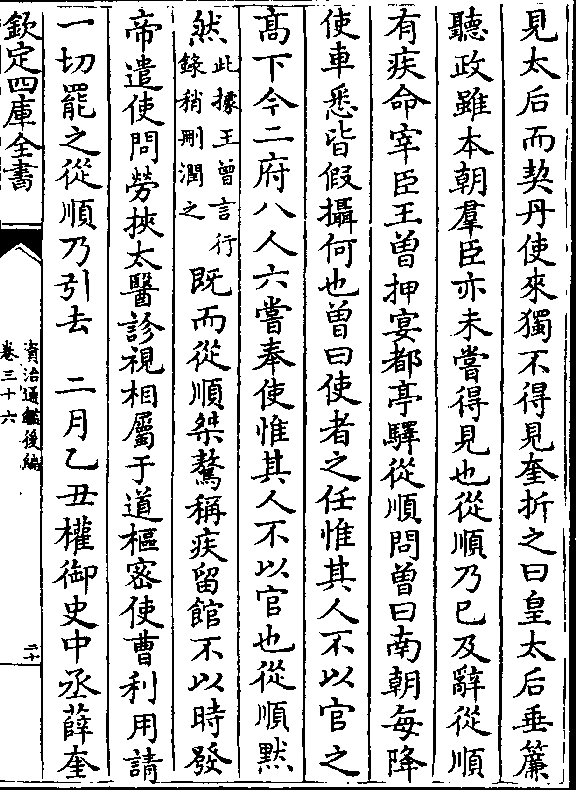 見太后而契丹使來獨不得見奎折之曰皇太后垂簾
聽政雖本朝羣臣亦未嘗得見也從順乃已及辭從順
有疾命宰臣王曾押宴都亭驛從順問曾曰南朝每降
使車悉皆假攝何也曾曰使者之任惟其人不以官之
髙下今二府八人六嘗奉使惟其人不以官也從順黙
然此據王曾言行錄稍刪潤之既而從順桀驁稱疾留館不以時發
帝遣使問勞挾太醫診視相屬于道樞密使曹利用請
一切罷之從順乃引去　二月乙丑權御史中丞薛奎
欽定四庫全書
資治通鑑後編
卷三十六
二十